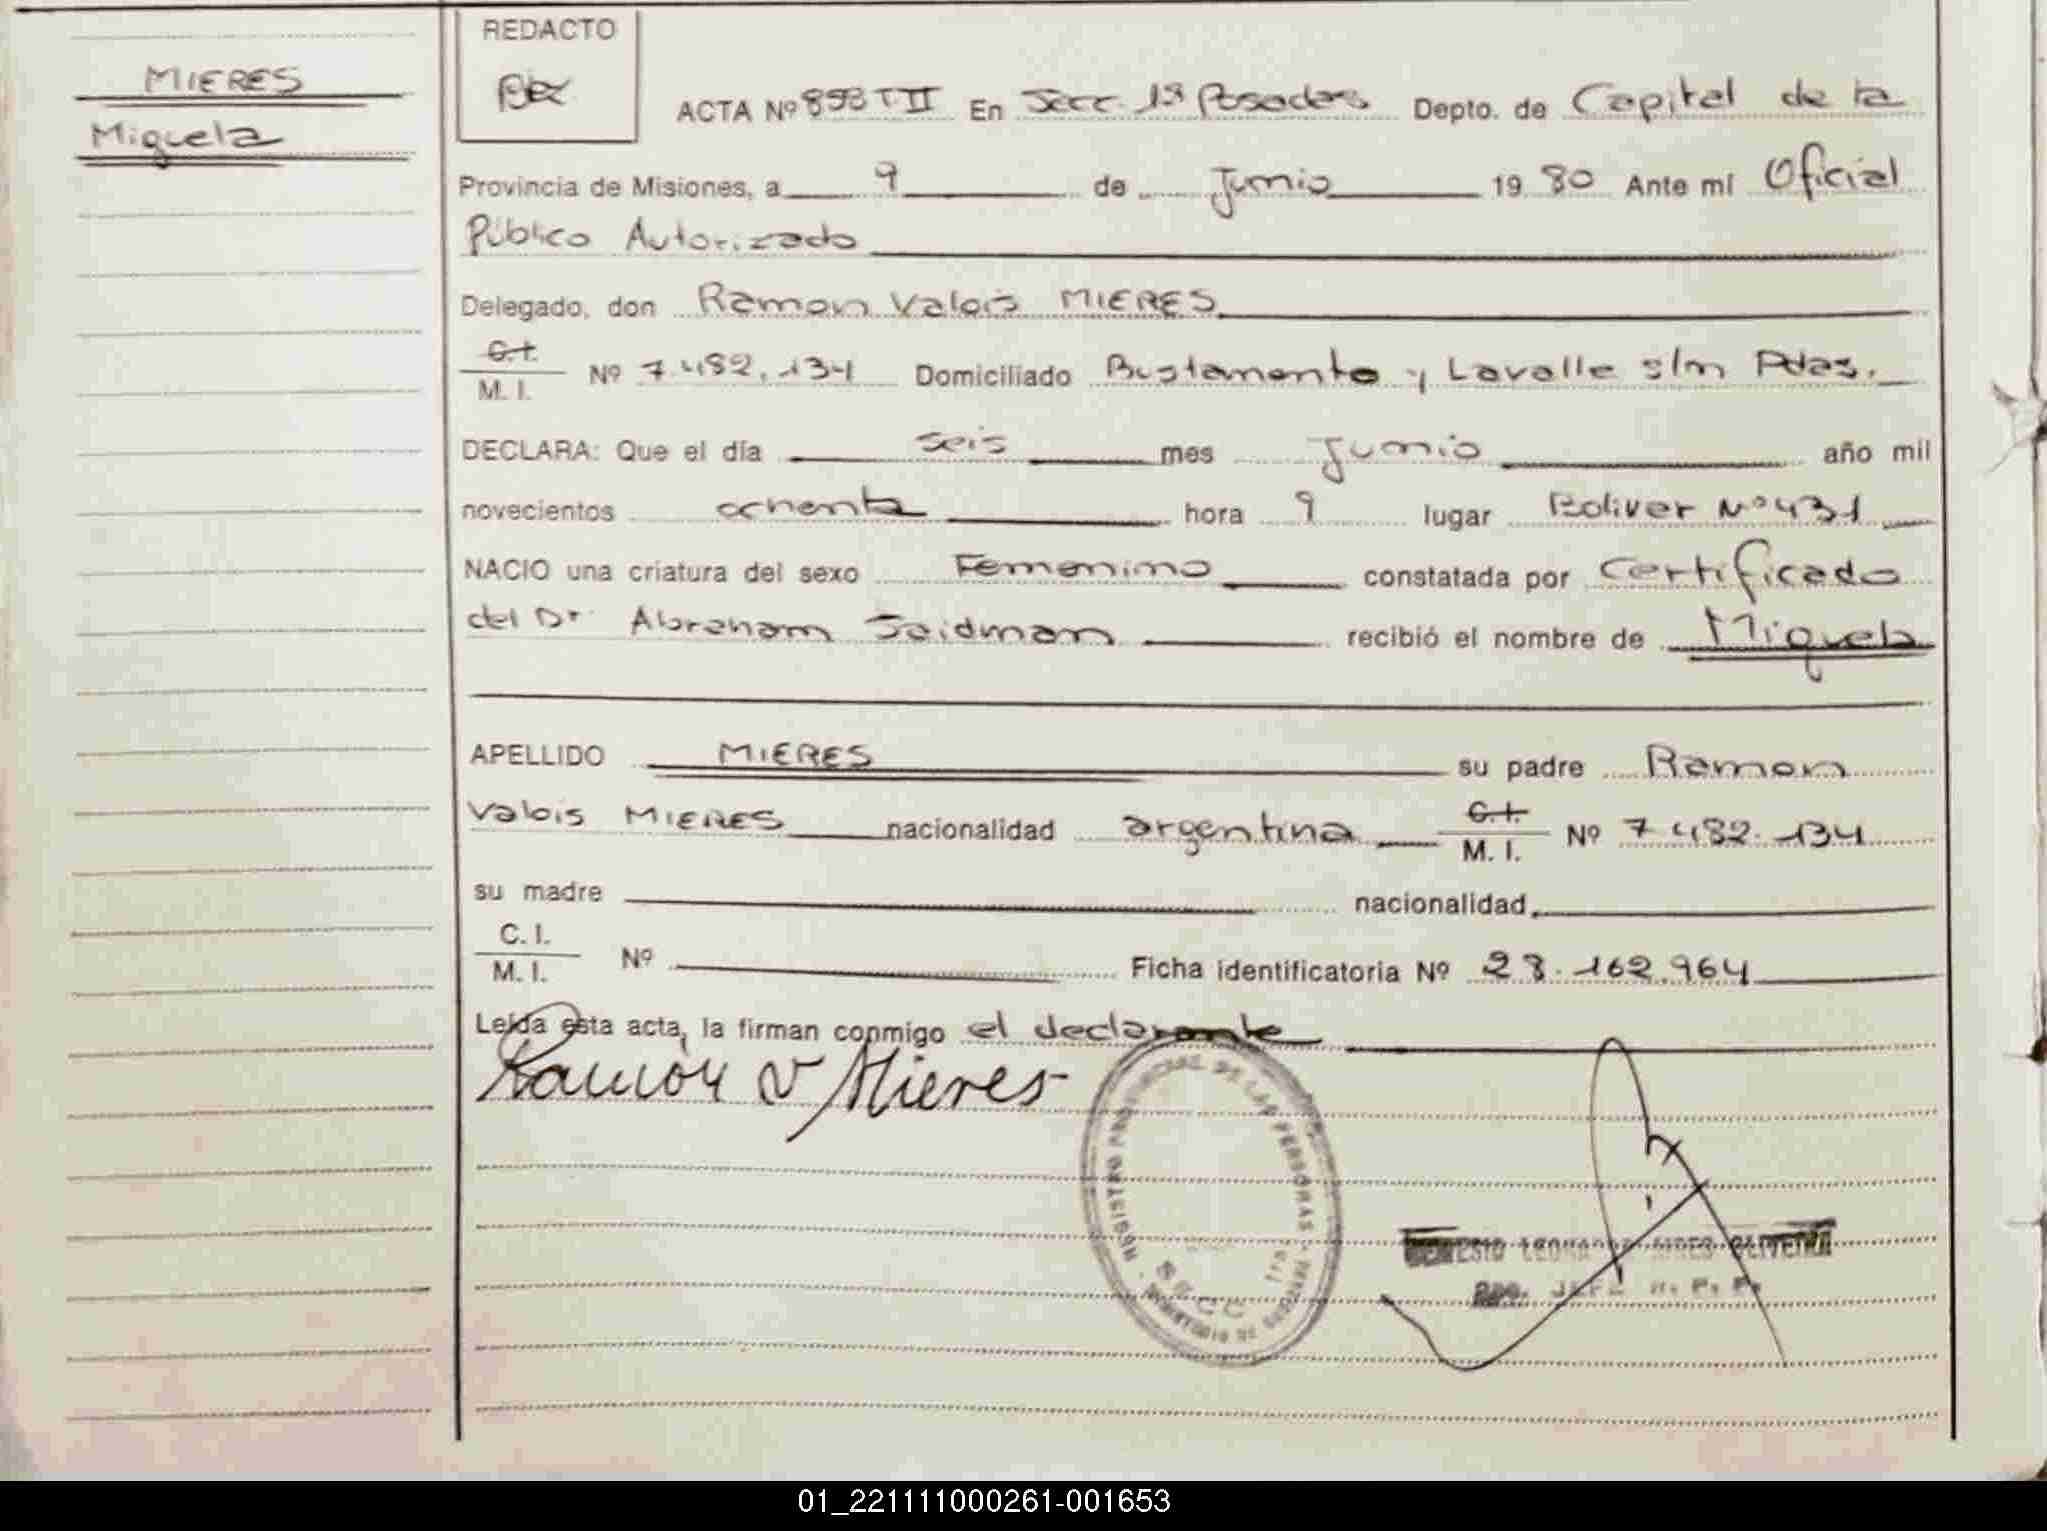 MIERES
Miguela
REDACTO
ACTA Nº 893 T II En Secc. 1ª Posadas Depto. de Capital de la
Provincia de Misiones, a 9 de Junio 19 80 Ante mí Oficial
Público Autorizado
Delegado, don Ramon Valois MIERES
C.I.
M. I. Nº 7.482.134 Domiciliado Bustamente y Lavalle s/n Pdas.
DECLARA: Que el día seis mes Junio año mil
novecientos ochenta hora 9 lugar Bolivar Nº 431
NACIO una criatura del sexo Femenino constatada por Certificado
del Dr. Abraham Saidman recibió el nombre de Miguela
APELLIDO MIERES su padre Ramon
Valois MIERES nacionalidad argentina C.I. M. I. Nº 7.482.134
su madre nacionalidad
C. I.
M. I. Nº Ficha identificatoria Nº 28.162.964
Leída esta acta, la firman conmigo el declarante
Ramón V Mieres
REGISTRO PROVINCIAL DE LAS PERSONAS
SECC 1ra
OLIVEIRA
JEFE R. P. P.
01_221111000261-001653